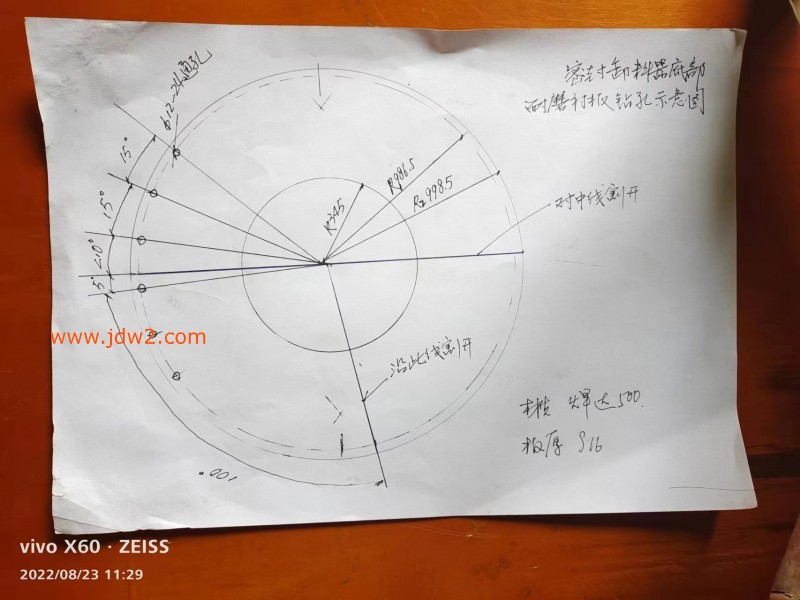 密封卸料器底部
耐磨衬板钻孔示意图
φ12-24通孔
15°
15°
10°
5°
R345
R986.5
R998.5
对中线割开
沿此线割开
100°
材料 焊达500
板厚 δ16
www.jdw2.com
vivo X60 · ZEISS
2022/08/23 11:29